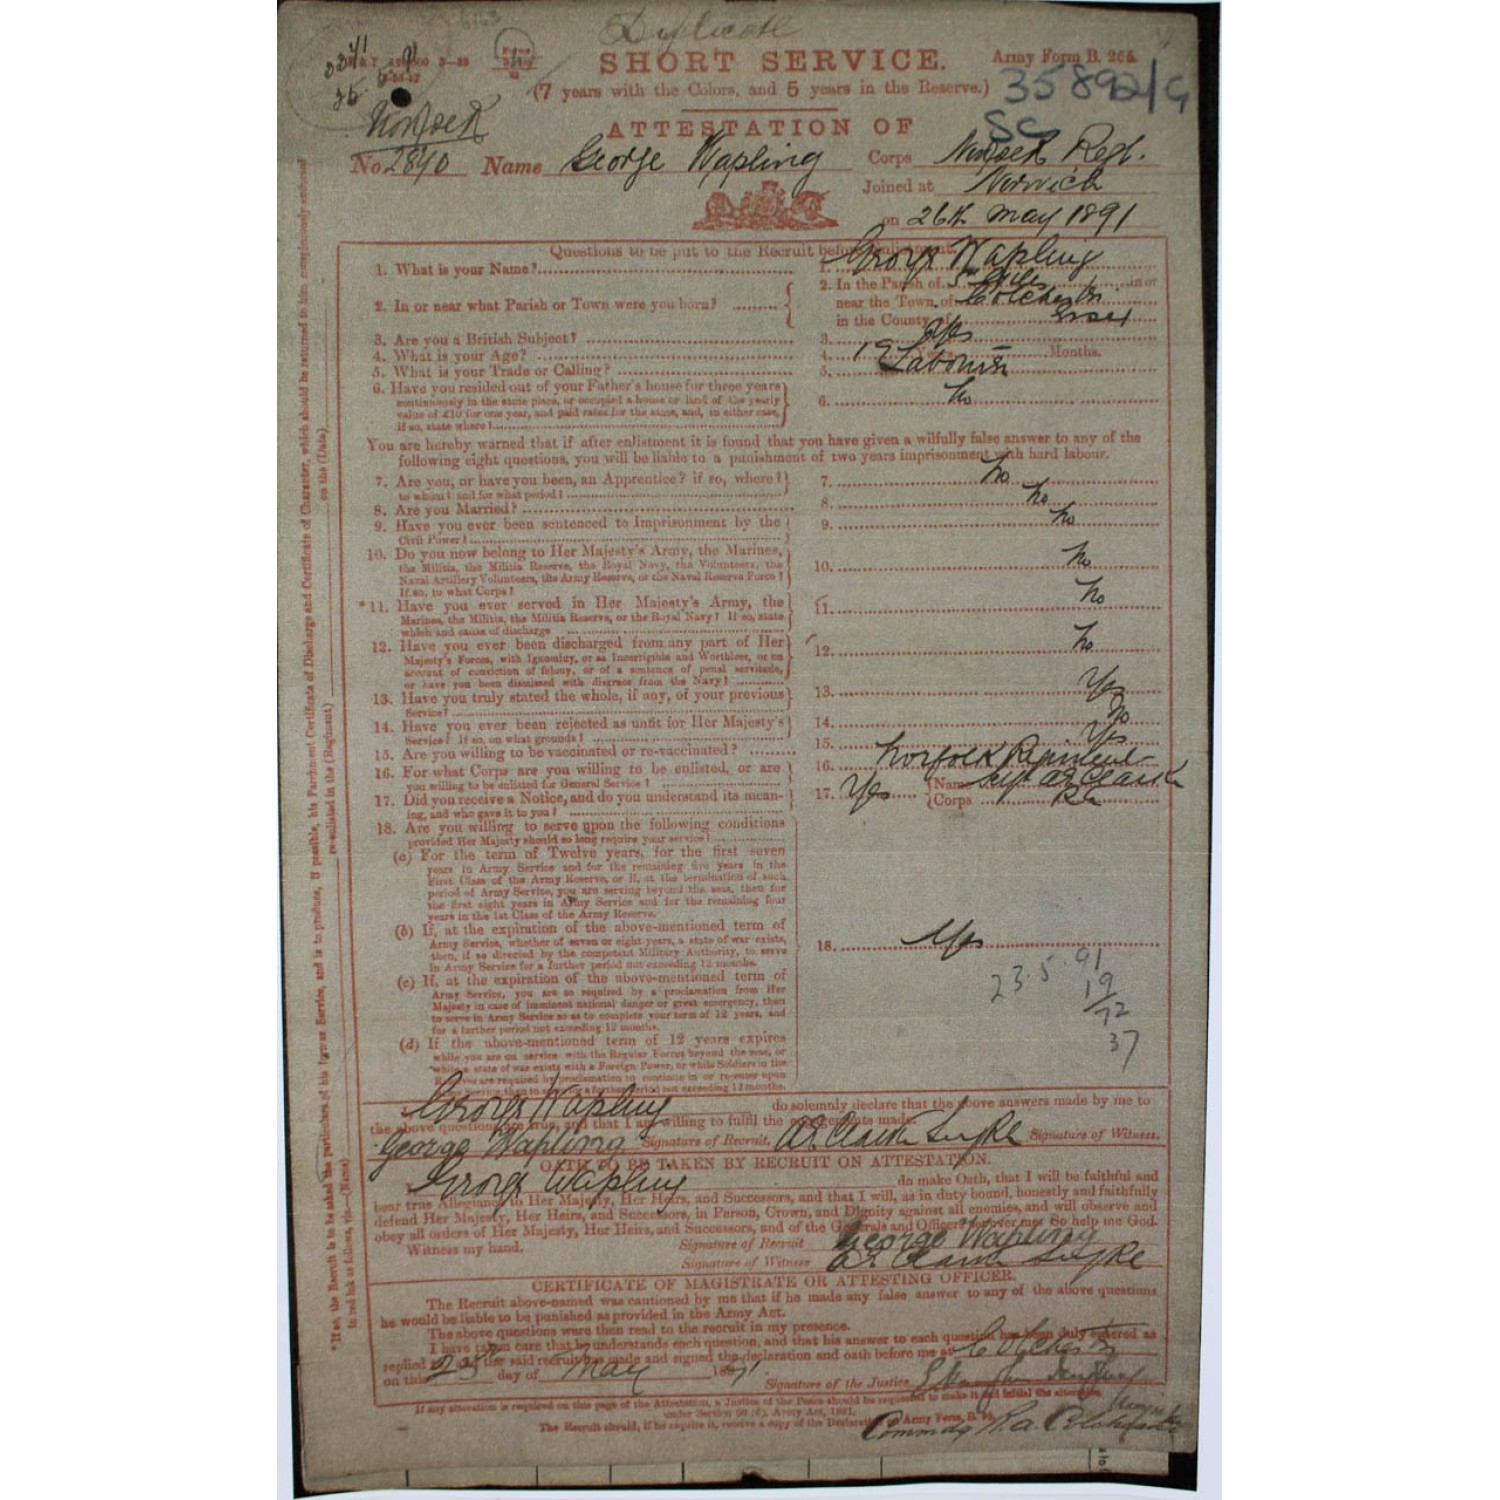 Duplicate
SHORT SERVICE.
Army Form B. 265.
(7 years with the Colors, and 5 years in the Reserve.)
35892/G
SC
ATTESTATION OF
Norfolk
No 2840 Name George Wapling Corps Norfolk Regt.
Joined at Norwich
on 26th May 1891
Questions to be put to the Recruit before enlistment.
1. What is your Name? 1. George Wapling
2. In or near what Parish or Town were you born? 2. In the Parish of St Giles in or
near the Town of Colchester
in the County of Essex
3. Are you a British Subject? 3. Yes
4. What is your Age? 4. 19 Months.
5. What is your Trade or Calling? 5. Labourer
6. Have you resided out of your Father's house for three years
continuously in the same place, or occupied a house or land of the yearly
value of £10 for one year, and paid rates for the same, and, in either case,
if so, state where? 6. No
You are hereby warned that if after enlistment it is found that you have given a wilfully false answer to any of the
following eight questions, you will be liable to a punishment of two years imprisonment with hard labour.
7. Are you, or have you been, an Apprentice? if so, where?
to whom? and for what period? 7. No
8. Are you Married? 8. No
9. Have you ever been sentenced to Imprisonment by the
Civil Power? 9. No
10. Do you now belong to Her Majesty's Army, the Marines,
the Militia, the Militia Reserve, the Royal Navy, the Volunteers, the
Naval Artillery Volunteers, the Army Reserve, or the Naval Reserve Force?
If so, to what Corps? 10. No
*11. Have you ever served in Her Majesty's Army, the
Marines, the Militia, the Militia Reserve, or the Royal Navy? If so, state
which and cause of discharge 11. No
12. Have you ever been discharged from any part of Her
Majesty's Forces, with Ignominy, or as Incorrigible and Worthless, or on
account of conviction of felony, or of a sentence of penal servitude,
or have you been dismissed with disgrace from the Navy? 12. No
13. Have you truly stated the whole, if any, of your previous
Service? 13. Yes
14. Have you ever been rejected as unfit for Her Majesty's
Service? If so, on what grounds? 14. No
15. Are you willing to be vaccinated or re-vaccinated? 15. Yes
16. For what Corps are you willing to be enlisted, or are
you willing to be enlisted for General Service? 16. Norfolk Regiment
17. Did you receive a Notice, and do you understand its mean-
ing, and who gave it to you? 17. Yes Name
Corps RA
18. Are you willing to serve upon the following conditions
provided Her Majesty should so long require your service?
(a) For the term of Twelve years, for the first seven
years in Army Service and for the remaining five years in the
First Class of the Army Reserve, or if, at the termination of such
period of Army Service, you are serving beyond the seas, then for
the first eight years in Army Service and for the remaining four
years in the 1st Class of the Army Reserve.
(b) If, at the expiration of the above-mentioned term of
Army Service, whether of seven or eight years, a state of war exists,
then, if so directed by the competent Military Authority, to serve
in Army Service for a further period not exceeding 12 months. 18. Yes
(c) If, at the expiration of the above-mentioned term of
Army Service, you are so required by a proclamation from Her
Majesty in case of imminent national danger or great emergency, then
to serve in Army Service so as to complete your term of 12 years, and
for a further period not exceeding 12 months.
23.5.91
19
72
37
(d) If the above-mentioned term of 12 years expires
while you are on service with the Regular Forces beyond the seas, or
while a state of war exists with a Foreign Power, or while Soldiers in the
Reserve are required by proclamation to continue in or re-enter upon
for a further period not exceeding 12 months.
I George Wapling do solemnly declare that the above answers made by me to
the above questions are true, and that I am willing to fulfil the engagements made.
George Wapling Signature of Recruit. Signature of Witness.
OATH TO BE TAKEN BY RECRUIT ON ATTESTATION.
I George Wapling do make Oath, that I will be faithful and
bear true Allegiance to Her Majesty, Her Heirs, and Successors, and that I will, as in duty bound, honestly and faithfully
defend Her Majesty, Her Heirs, and Successors, in Person, Crown, and Dignity against all enemies, and will observe and
obey all orders of Her Majesty, Her Heirs, and Successors, and of the Generals and Officers set over me. So help me God.
Witness my hand. Signature of Recruit George Wapling
Signature of Witness
CERTIFICATE OF MAGISTRATE OR ATTESTING OFFICER.
The Recruit above-named was cautioned by me that if he made any false answer to any of the above questions
he would be liable to be punished as provided in the Army Act.
The above questions were then read to the recruit in my presence.
I have taken care that he understands each question, and that his answer to each question has been duly entered as
replied to, and the said recruit has made and signed the declaration and oath before me at Colchester
on this 23rd day of May 1891.
Signature of the Justice
If any alteration is required on this page of the Attestation, a Justice of the Peace should be requested to make it and initial the alteration
under Section 80 (6), Army Act, 1881.
The Recruit should, if he require it, receive a copy of the Declaration on Army Form, B.
Commdg R.A. Colchester
*If so, the Recruit is to be asked the particulars of his former Service, and is to produce, if possible, his Parchment Certificate of Discharge and Certificate of Character, which should be returned to him conspicuously endorsed
in red ink as follows, viz.—(Name) re-enlisted in the (Regiment) on the (Date)